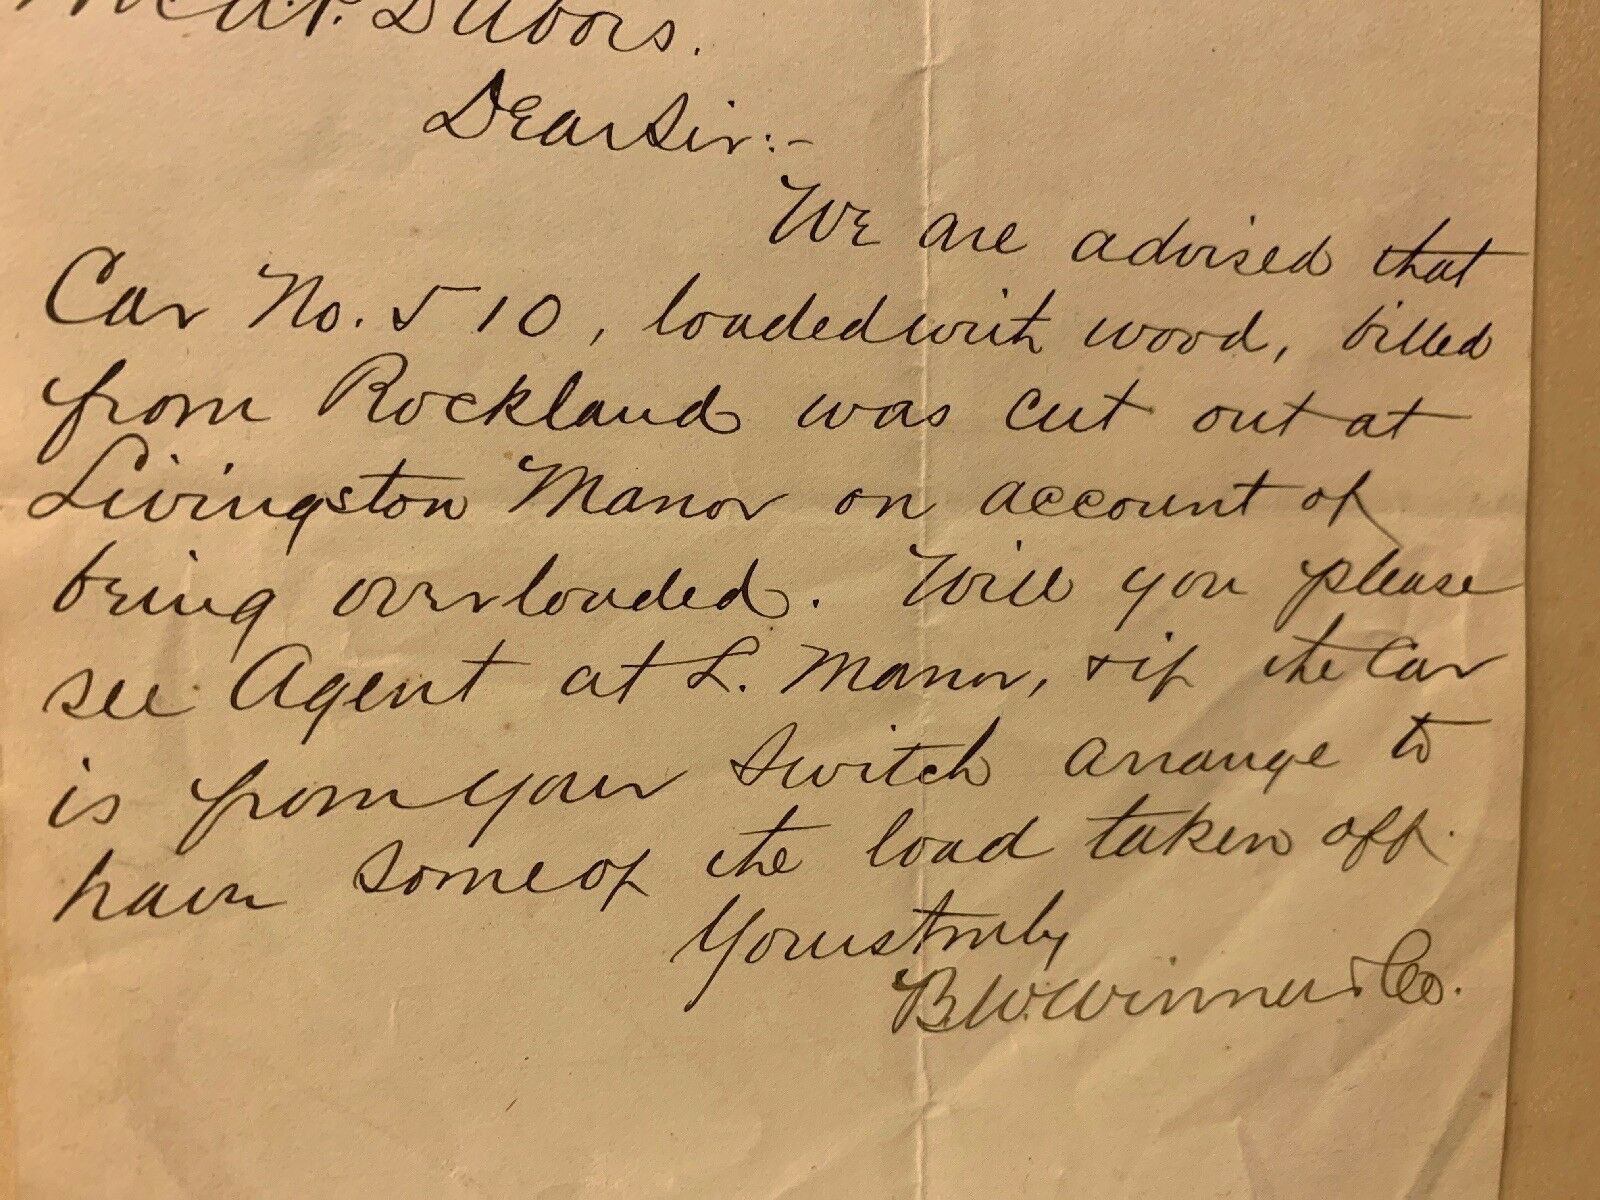 A.P. DuBois.
Dear Sir:-
We are advised that
Car No. 510, loaded with wood, billed
from Rockland was cut out at
Livingston Manor on account of
being overloaded. Will you please
see Agent at L. Manor, & if the car
is from your switch arrange to
have some of the load taken off.
Yours truly
B.W. Winner & Co.